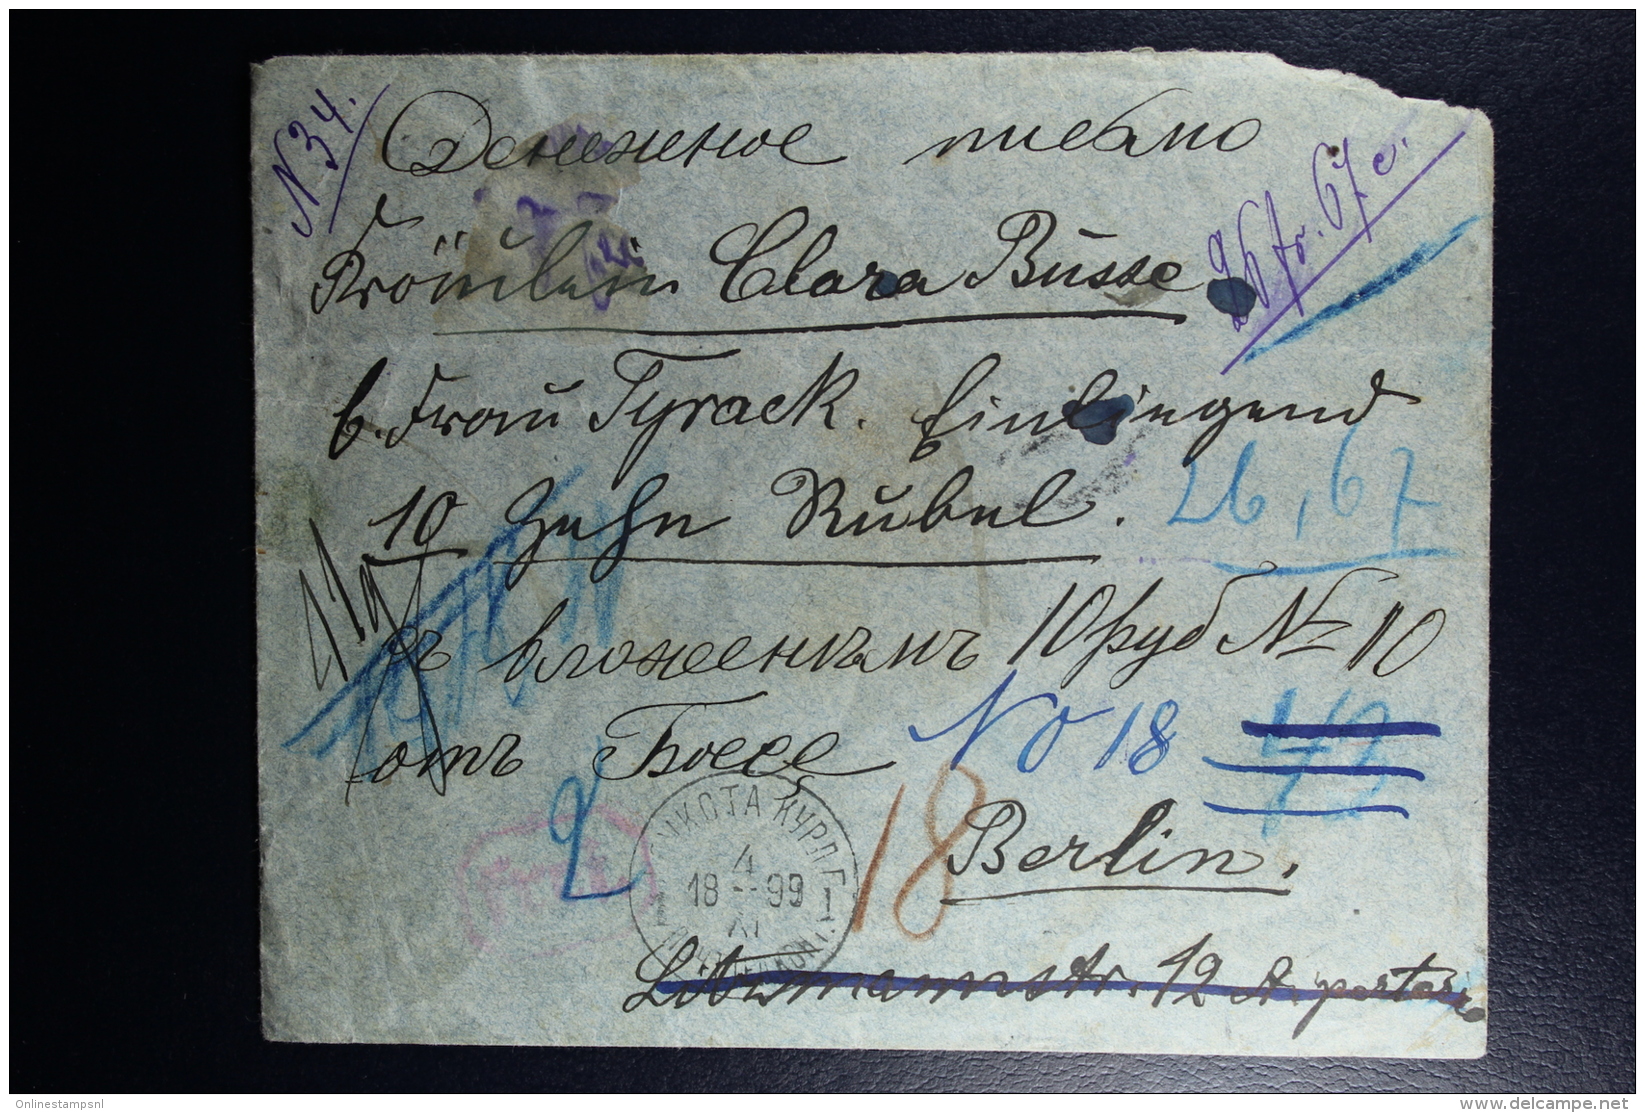 N 34.
Денежное письмо
26 fr. 67 c.
Fräulein Clara Busse
b. Frau Tyrack. Einliegend
10 Zehn Rubel. 26,67
съ вложенiемъ 10 руб № 10
отъ Бюссе No 18
2
18
4
18 99
XI
Berlin.
12 A. portar
Onlinestampsnl
http://www.delcampe.net